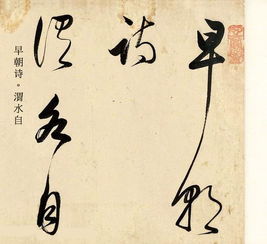 早朝
诗
渭水自
早朝诗。渭水自